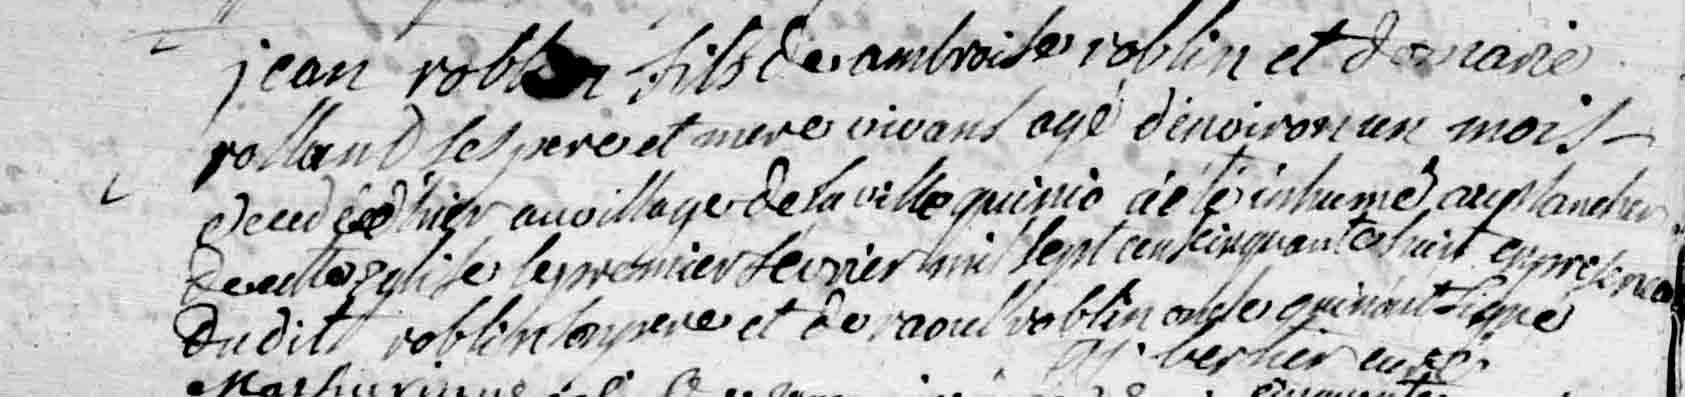 jean roblin fils de ambroise roblin et de marie
rolland ses pere et mere vivans agé d'environ un mois
decedé d'hier au village de la ville quinio a été inhumé au plancher
de cette eglise le premier fevrier mil sept cent cinquante huit en presence
dudit roblin son pere et de raoul roblin oncle qui n'ont signé
berhier curé